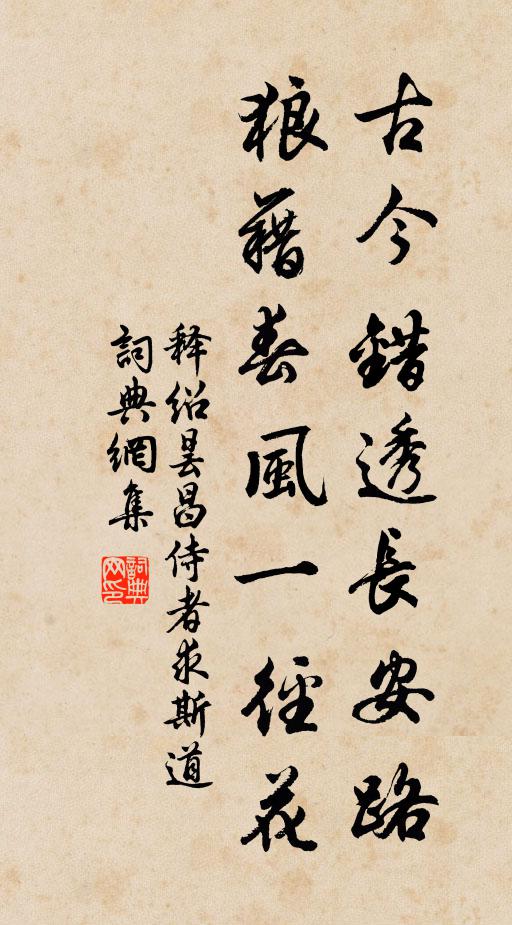 古今錯透長安路
狼藉春風一徑花
释绍昙昌侍者求斯道
詞典網集
詞典网印